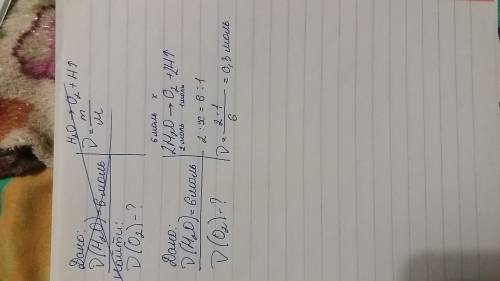 Дано:
ν(H₂O)=6моль
Найти:
ν(O₂)-?
H₂O→O₂+H↑
ν=m/M
Дано:
ν(H₂O)=6моль
ν(O₂)-?
6моль x
2H₂O→O₂+2H↑
2моль 1моль
2:x=6:1
ν=2·1/6=0,3моль.